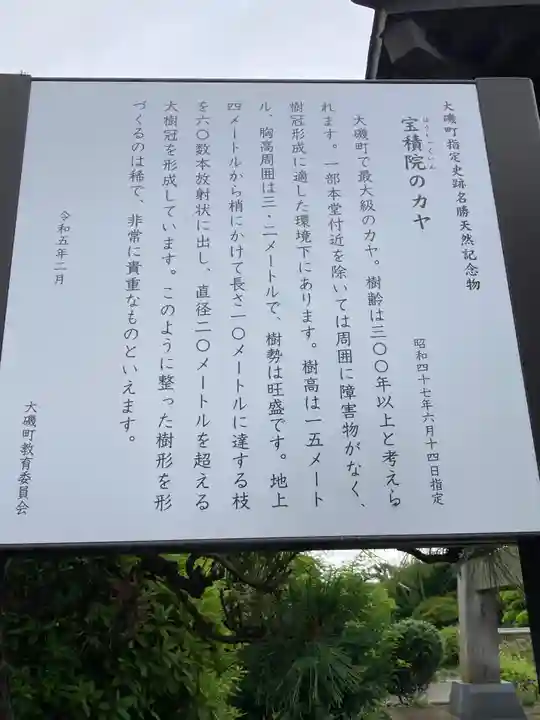 大磯町指定史跡名勝天然記念物
ほうしゃくいん
宝積院のカヤ
昭和四十七年六月十四日指定
大磯町で最大級のカヤ。樹齢は三〇〇年以上と考えら
れます。一部本堂付近を除いては周囲に障害物がなく、
樹冠形成に適した環境下にあります。樹高は一五メート
ル、胸高周囲は三・二メートルで、樹勢は旺盛です。地上
四メートルから梢にかけて長さ一〇メートルに達する枝
を六〇数本放射状に出し、直径二〇メートルを超える
大樹冠を形成しています。このように整った樹形を形
づくるのは稀で、非常に貴重なものといえます。
令和五年二月
大磯町教育委員会